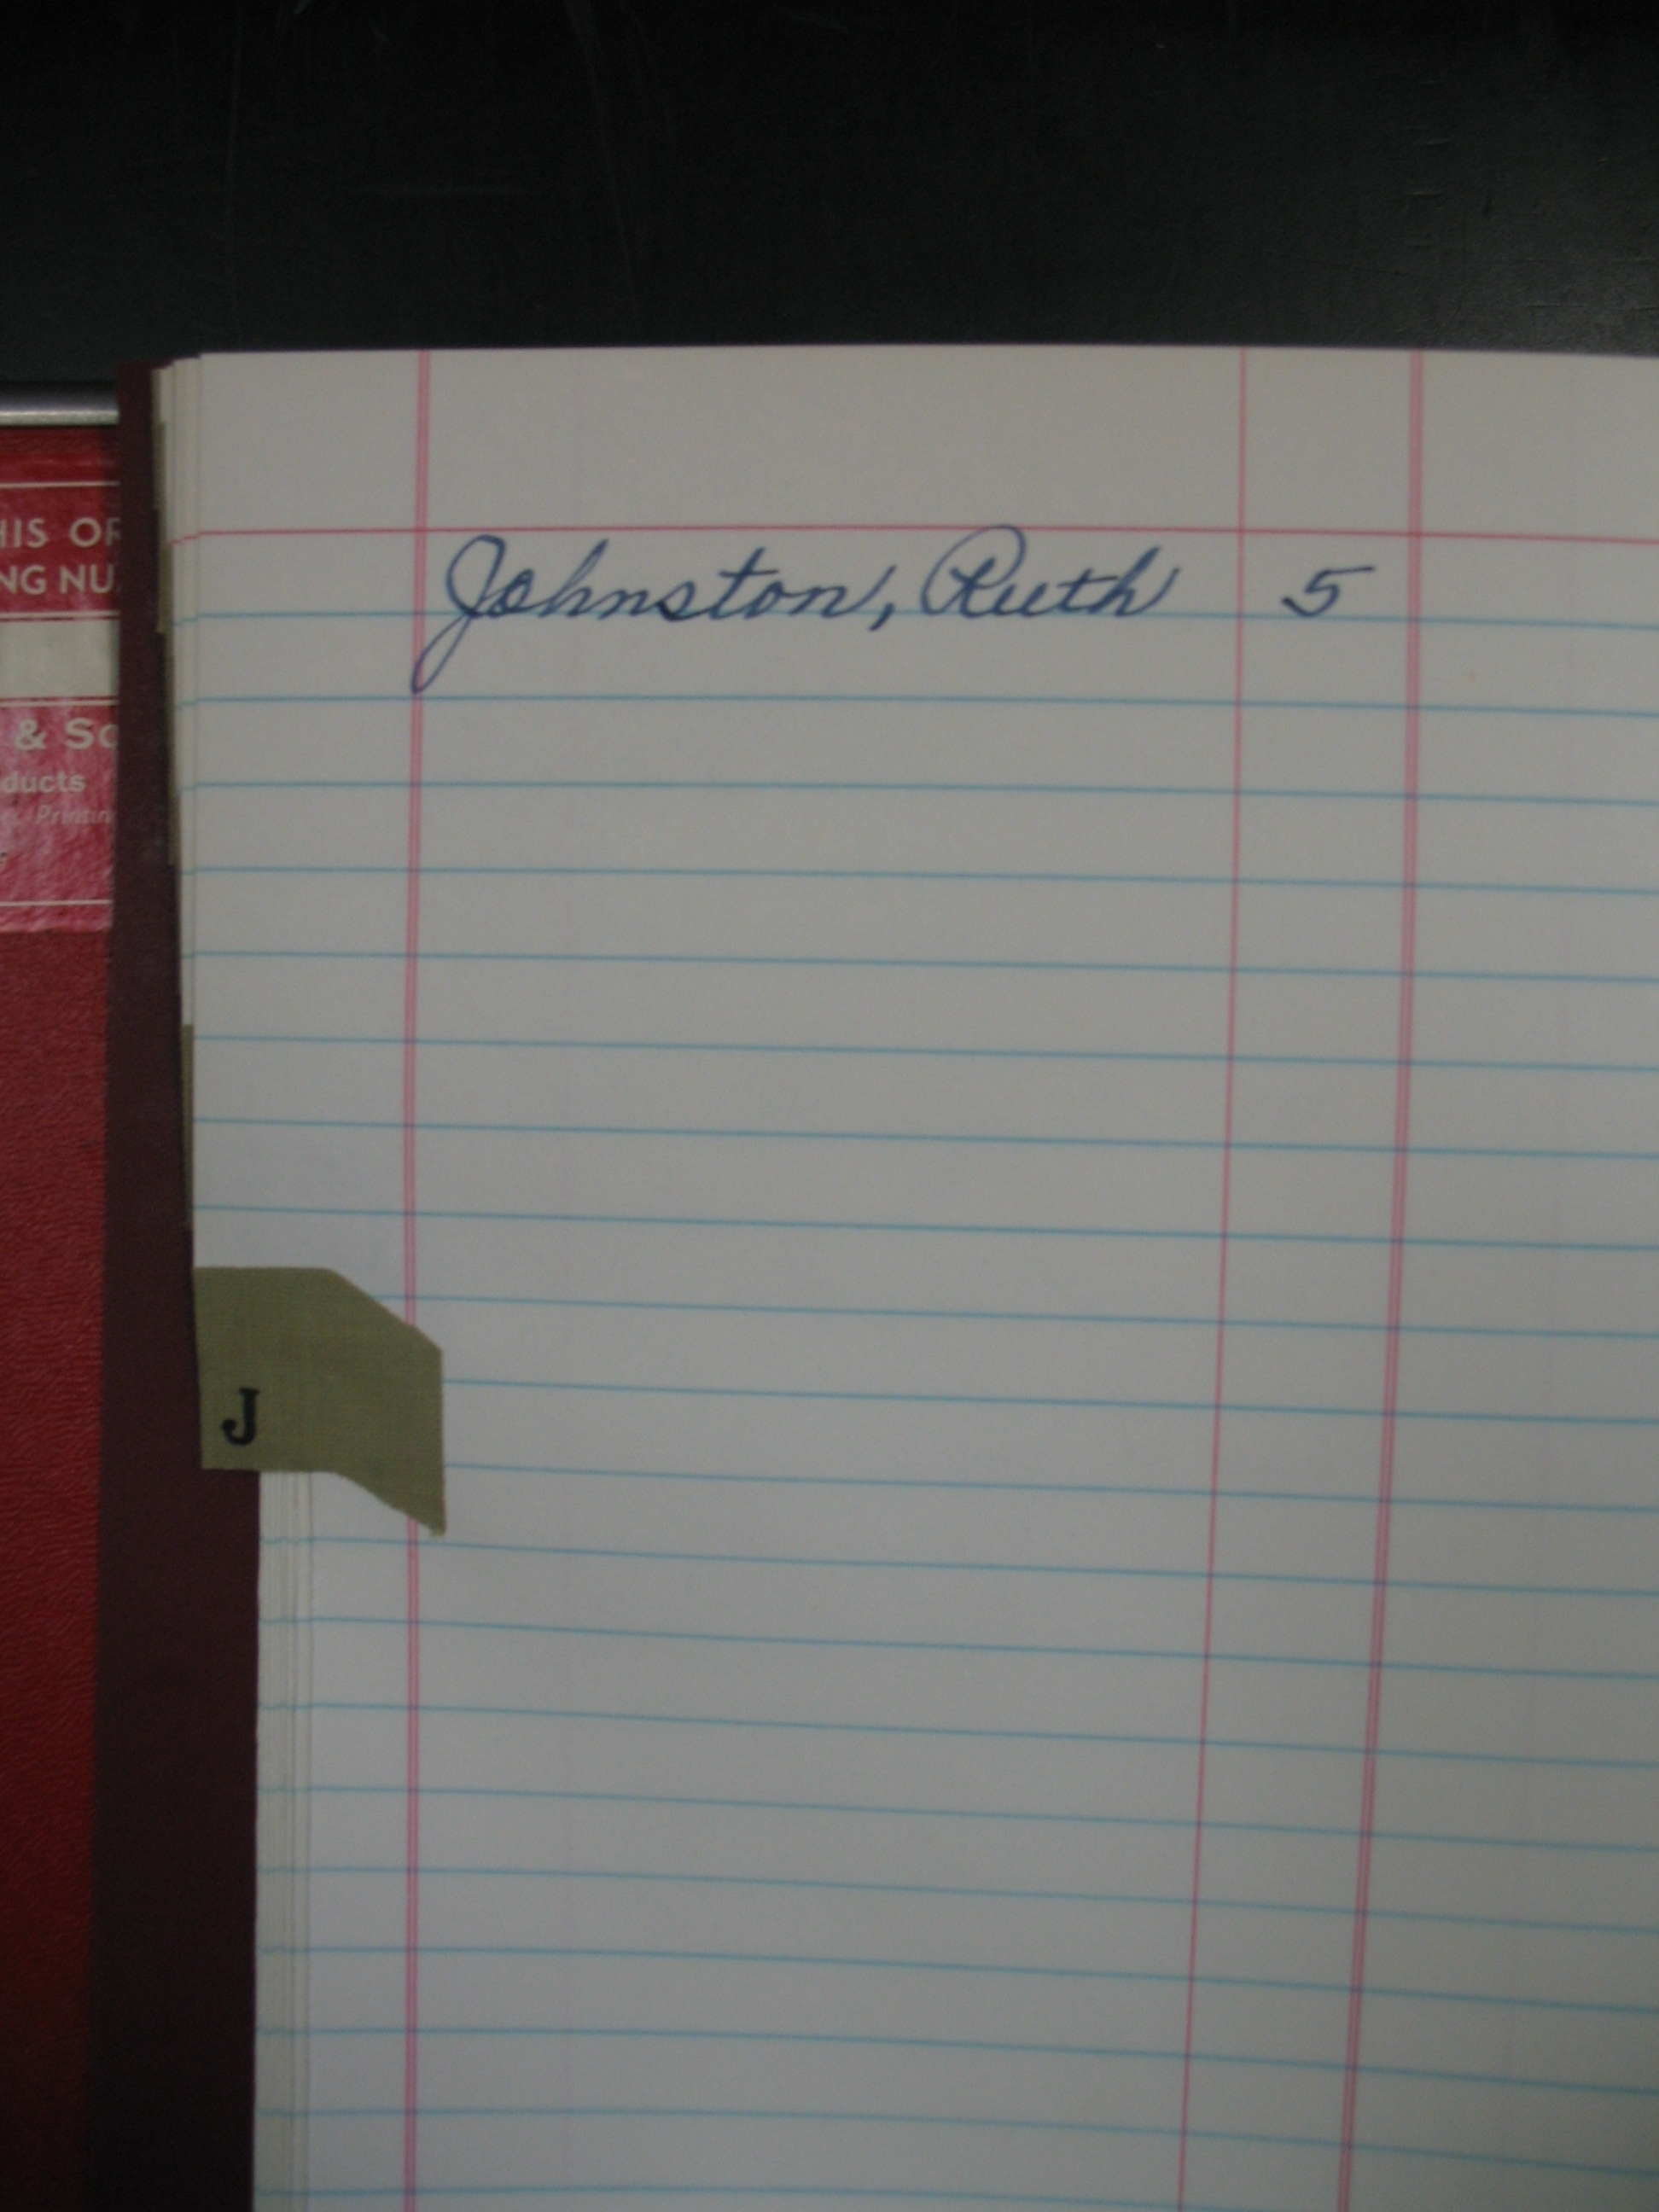 HIS OR
NG NU
& So
ducts
Printin
Johnston, Ruth 5
J